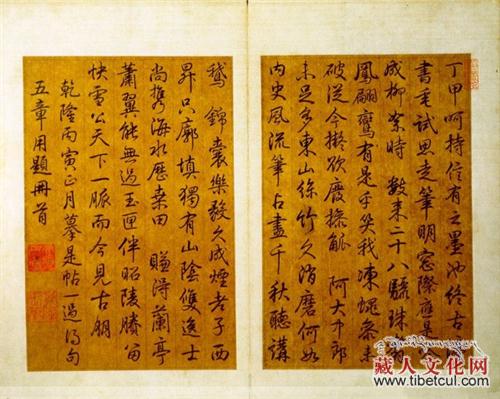 丁甲呵持信有之墨池終古
試思走筆明窗際應是
成柳絮時 數來二十八驪珠
鸞有是乎笑我凍蠅參未
破從今擬欲廢操觚 阿大中郎
未足多東山絲竹久消磨何如
內史風流筆占盡千秋聽講
鵝 錦囊樂毅久成煙老子西
昇只廓填獨有山陰雙逸士
尚攜海水歷桑田 賺得蘭亭
蕭翼能無過玉匣伴昭陵賸留
快雪公天下一脈而今見古朋
乾隆丙寅正月摹是帖一過得句
五章用題冊首
藏人文化网
www.tibetcul.com